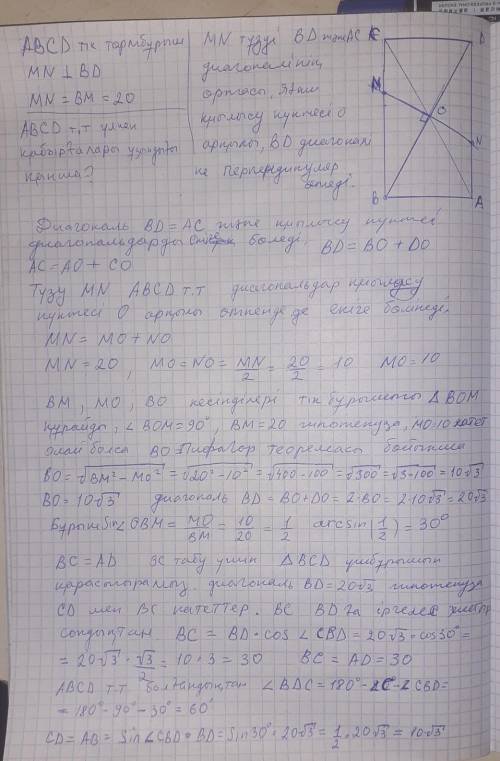 ABCD тік төртбұрыш
MN ⊥ BD
MN = BM = 20
ABCD т.т үлкен
қабырғалары ұзындығы
қанша?
MN түзуі BD және AC
диагоналінің
ортасы, яғни
қиылысу нүктесі O
арқылы, BD диагонал
ге перпендикуляр
өтеді.
C
D
M
O
N
B
A
Диагональ BD = AC және қиылысу нүктесі
диагональдарды бөледі, BD = BO + DO
AC = AO + CO
Түзу MN ABCD т.т диагональдар қиылысу
нүктесі O арқылы өткенде де екіге бөлінеді.
MN = MO + NO
MN = 20, MO = NO = MN/2 = 20/2 = 10 MO = 10
BM, MO, BO кесінділері тік бұрышты △BOM
құрайды, ∠BOM = 90°, BM = 20 гипотенуза, MO=10 катет
олай болса BO Пифагор теоремасы бойынша
BO = √BM² - MO² = √20² - 10² = √400 - 100 = √300 = √3·100 = 10√3
BO = 10√3 диагональ BD = BO + DO = 2·BO = 2·10√3 = 20√3
Бұрыш Sin∠OBM = MO/BM = 10/20 = 1/2 arcsin(1/2) = 30°
BC = AD BC табу үшін △BCD үшбұрышын
қарастырамыз. диагональ BD = 20√3 гипотенуза
CD мен BC катеттер. BC BD ға іргелес
сондықтан BC = BD·cos∠CBD = 20√3·cos30° =
= 20√3·√3/2 = 10·3 = 30 BC = AD = 30
ABCD т.т болғандықтан ∠BDC = 180° - ∠C - ∠CBD =
= 180° - 90° - 30° = 60°
CD = AB = Sin∠CBD·BD = Sin30°·20√3 = 1/2·20√3 = 10√3